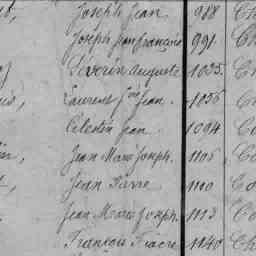 Joseph Jean 988 Ch
Joseph Jean François 991. Ch
Séverin Auguste 1035. Ch
Laurent Jean. 1056 Ch
Célestin Jean 1094 Co
Jean Marie Joseph. 1106 Co
Jean Pierre 1110 Co
Jean Marie Joseph. 1113 Co
François Fiacre 1140 Ch